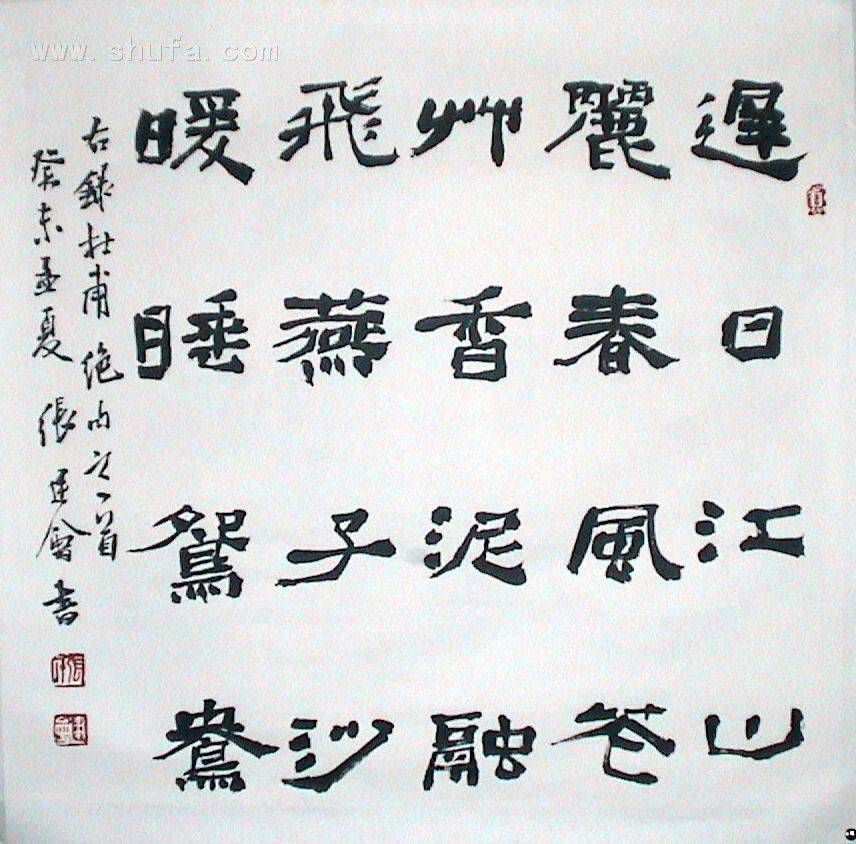 www.shufa.com
遲日江山
麗春風花
艸香泥融
飛燕子沙
暖睡鴛鴦
右錄杜甫絕句之一首
癸未孟夏 張建會書